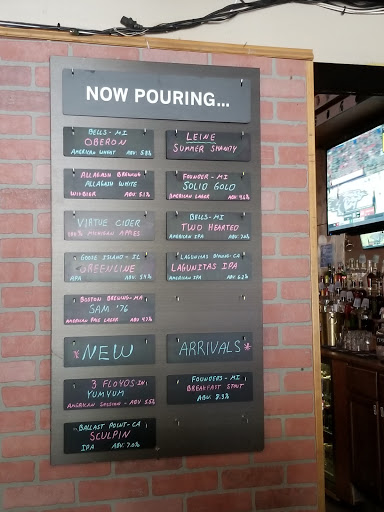 NOW POURING...
BELLS - MI
OBERON
AMERICAN WHEAT ABV: 5.8%
LEINE
SUMMER SHANDY
ALLAGASH BREWING
ALLAGASH WHITE
WITBIER ABV: 5.1%
FOUNDER - MI
SOLID GOLD
AMERICAN LAGER
VIRTUE CIDER
100% MICHIGAN APPLES
BELLS - MI
TWO HEARTED
AMERICAN IPA ABV: 7.0%
GOOSE ISLAND - IL
GREENLINE
APA ABV: 5.4%
LAGUNITAS BREWING - CA
LAGUNITAS IPA
AMERICAN IPA ABV: 6.2%
BOSTON BREWING - MA
SAM '76
AMERICAN PALE LAGER 4.7%
NEW
ARRIVALS
3 FLOYDS - IN
YUM YUM
AMERICAN SESSION - ABV 5.5%
FOUNDERS - MI
BREAKFAST STOUT
ABV: 8.3%
BALLAST POINT - CA
SCULPIN
IPA ABV: 7.0%